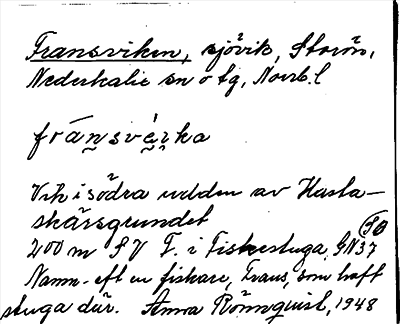 Fransviken, sjövik, Storön,
Nederkalix sn o tg, Norrb. l
fránsvérka
Vik i södra udden av Hasta-
skärsgrundet
200 m SV F. i Fiskestuga, GN37 SO
Namn eft en fiskare, Frans, som haft
stuga där. Anna Rönnquist, 1948